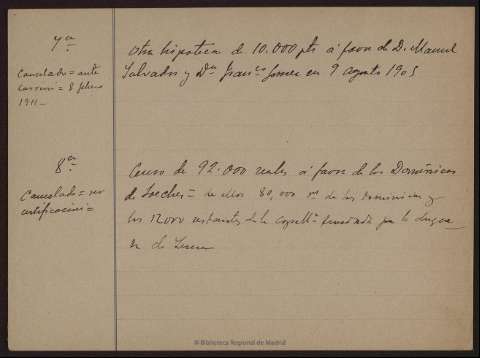 7ª
Cancelado = ante
= 8 febro
1911 _
Otra hipoteca de 10.000 pts á favor de D. Manuel
Salvador y Dª Franca Gomez en 9 agosto 1905
8ª
Cancelado =
certificacion =
Censo de 92.000 reales á favor de los Dominicos
de Loeches = de ellos 80,000 rs de las Dominicas y
los 12000 restantes de la capellª fundada por la
de
© Biblioteca Regional de Madrid